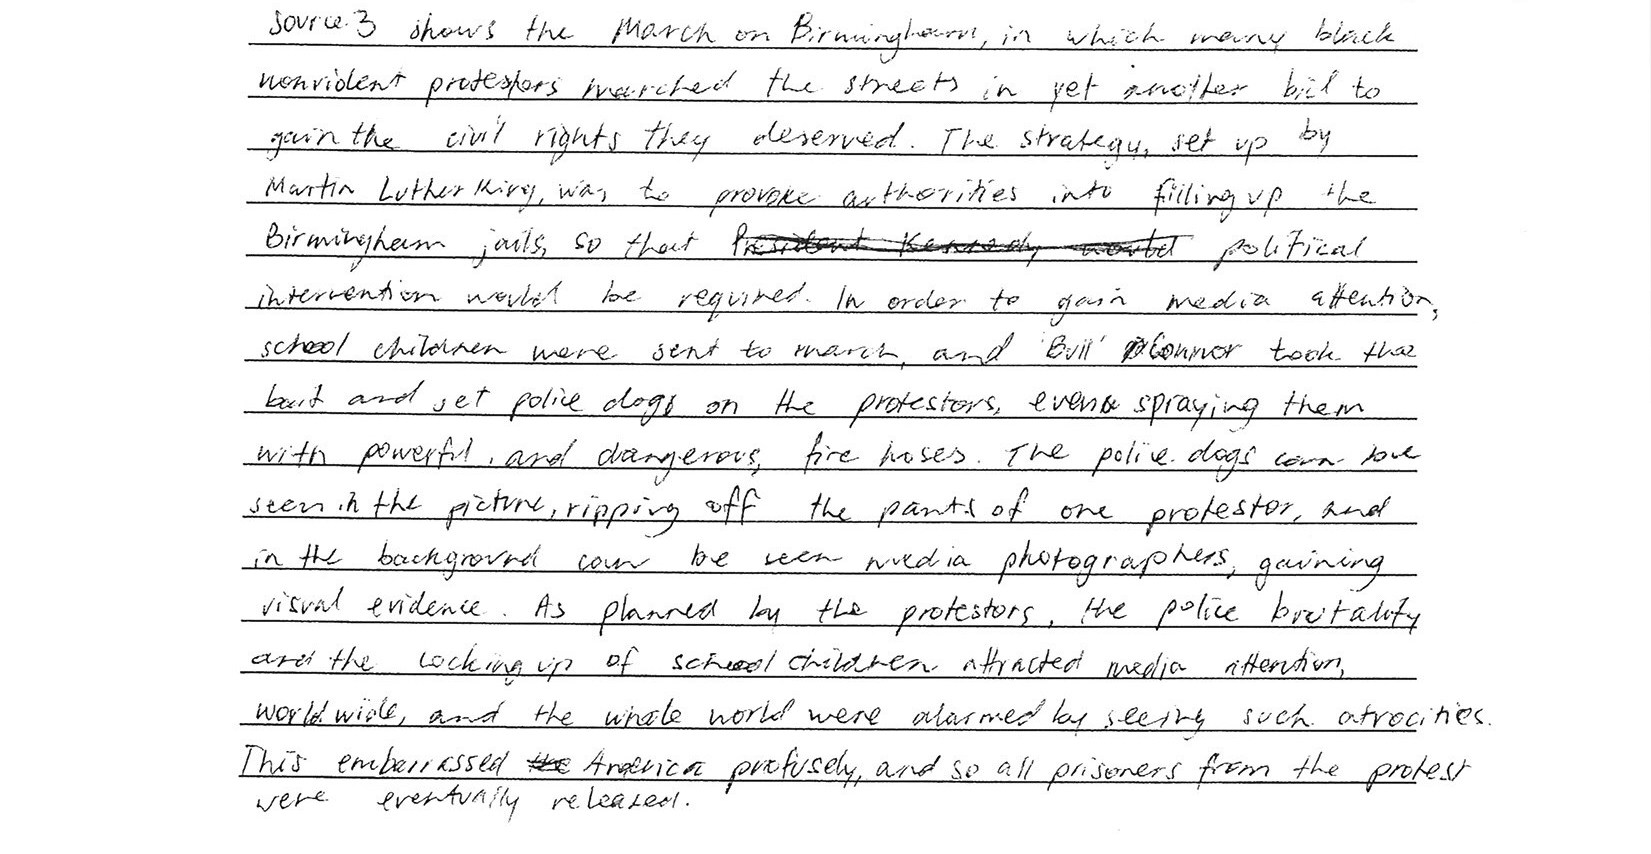 Source 3 shows the March on Birmingham, in which many black
nonviolent protestors marched the streets in yet another bid to
gain the civil rights they deserved. The strategy, set up by
Martin Luther King, was to provoke authorities into filling up the
Birmingham jails, so that President Kennedy would political
intervention would be required. In order to gain media attention,
school children were sent to march, and 'Bull' O'Connor took the
bait and set police dogs on the protestors, even spraying them
with powerful, and dangerous, fire hoses. The police dogs can be
seen in the picture, ripping off the pants of one protestor, and
in the background can be seen media photographers, gaining
visual evidence. As planned by the protestors, the police brutality
and the locking up of school children attracted media attention,
worldwide, and the whole world were alarmed by seeing such atrocities.
This embarrassed the America profusely, and so all prisoners from the protest
were eventually released.